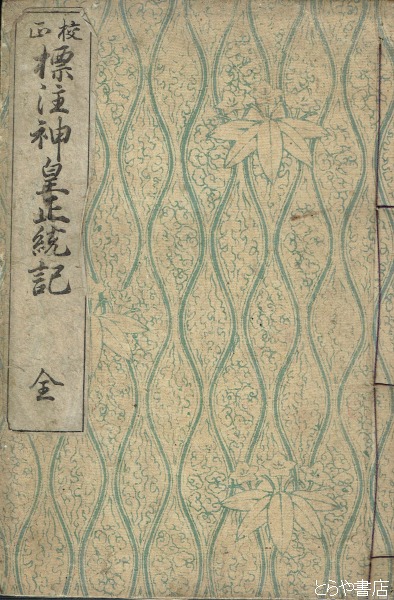 校正
標注神皇正統記
全
とらや書店